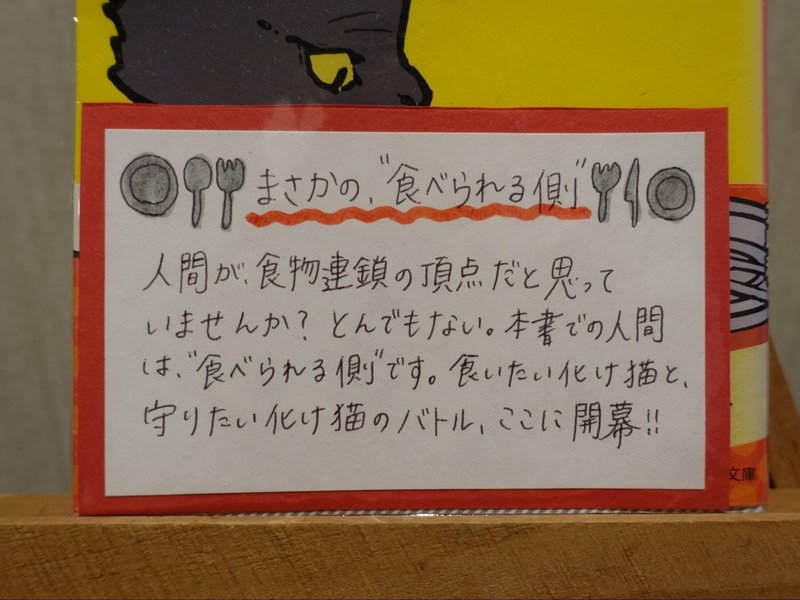 まさかの、"食べられる側"
人間が、食物連鎖の頂点だと思って
いませんか？とんでもない。本書での人間
は、"食べられる側"です。食いたい化け猫と、
守りたい化け猫のバトル、ここに開幕!!
文庫